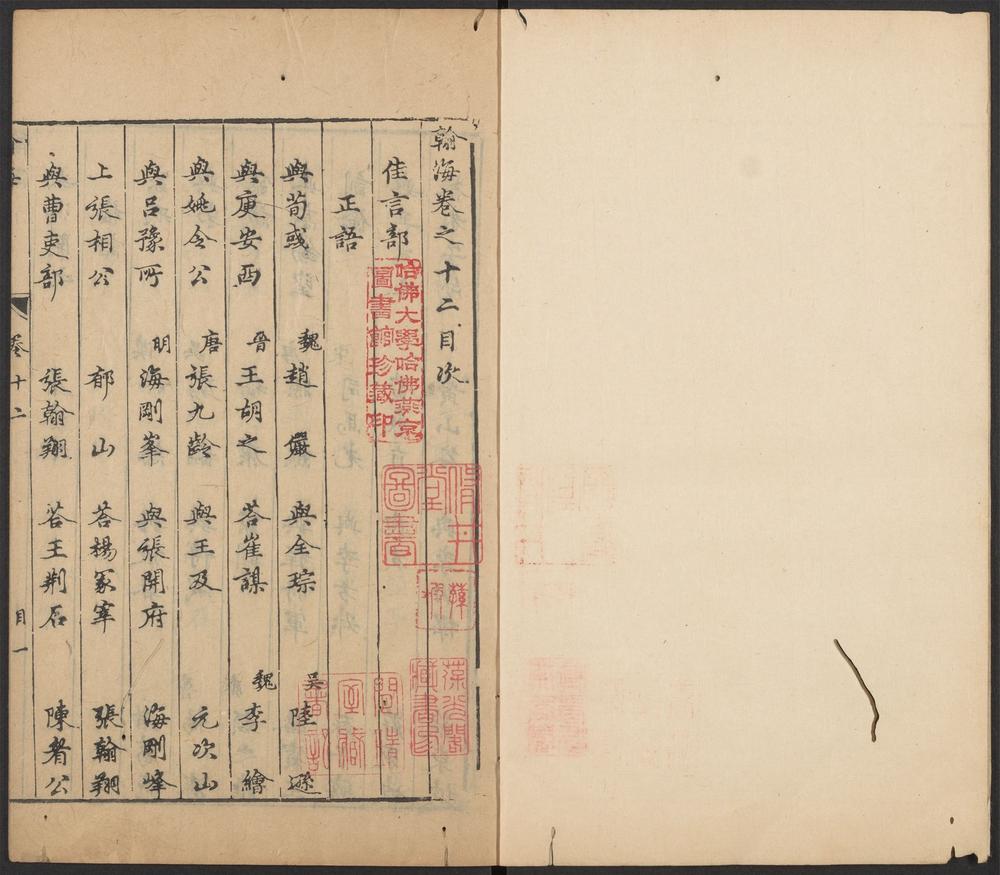 翰海卷之十二目次
佳言部
正語
與荀彧 魏趙儼 與全琮 吳陸遜
與庾安西 晉王胡之 荅崔諶 魏李繪
與姚令公 唐張九齡 與王及 元次山
與呂豫所 明海剛峯 與張開府 海剛峰
上張相公 郁山 荅楊冢宰 張翰翔
與曹吏部 張翰翔 荅王荆石 陳耆公
卷十二 目一
哈佛大學哈佛燕京
圖書館珍藏印